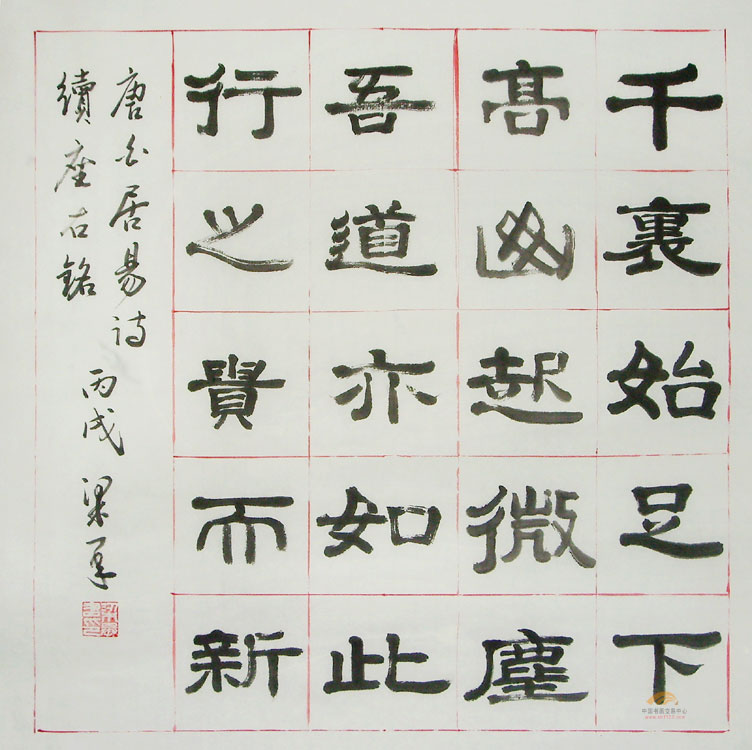 千裏始足下
高山起微塵
吾道亦如此
行之貴而新
唐白居易诗
續座右銘
丙戌 梁
中国书画交易中心